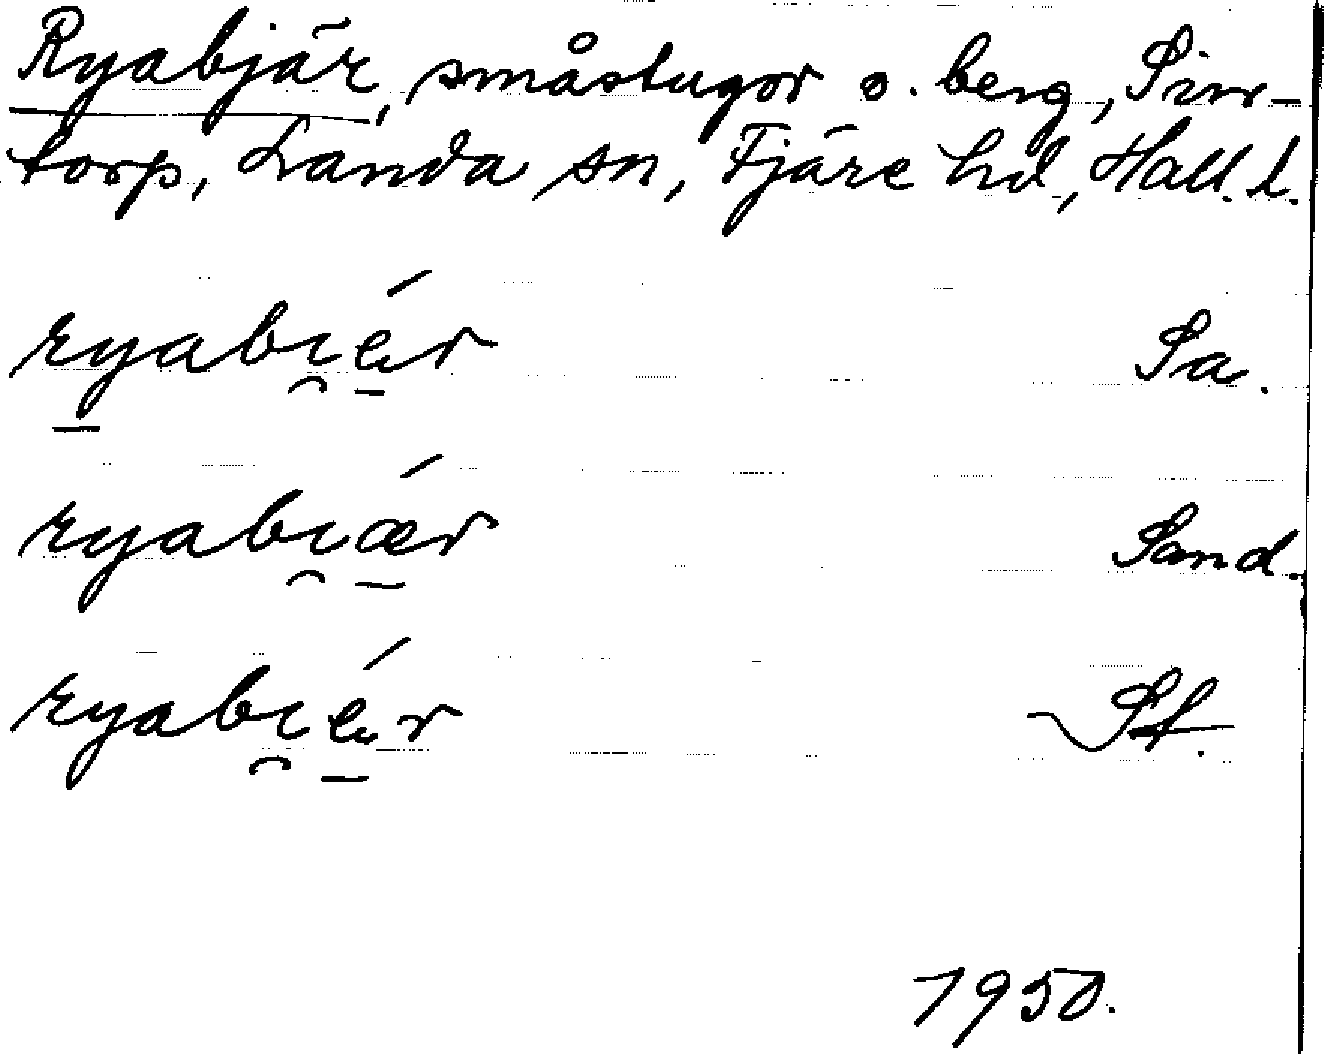 Ryabjär, småstugor o. berg, Sin-
torp, Landa sn, Fjäre hd, Hall. l.
ryabɩ̯ér Sa.
ryabɩ̯ǽr Sand.
ryabɩ̯ér St.
1950.